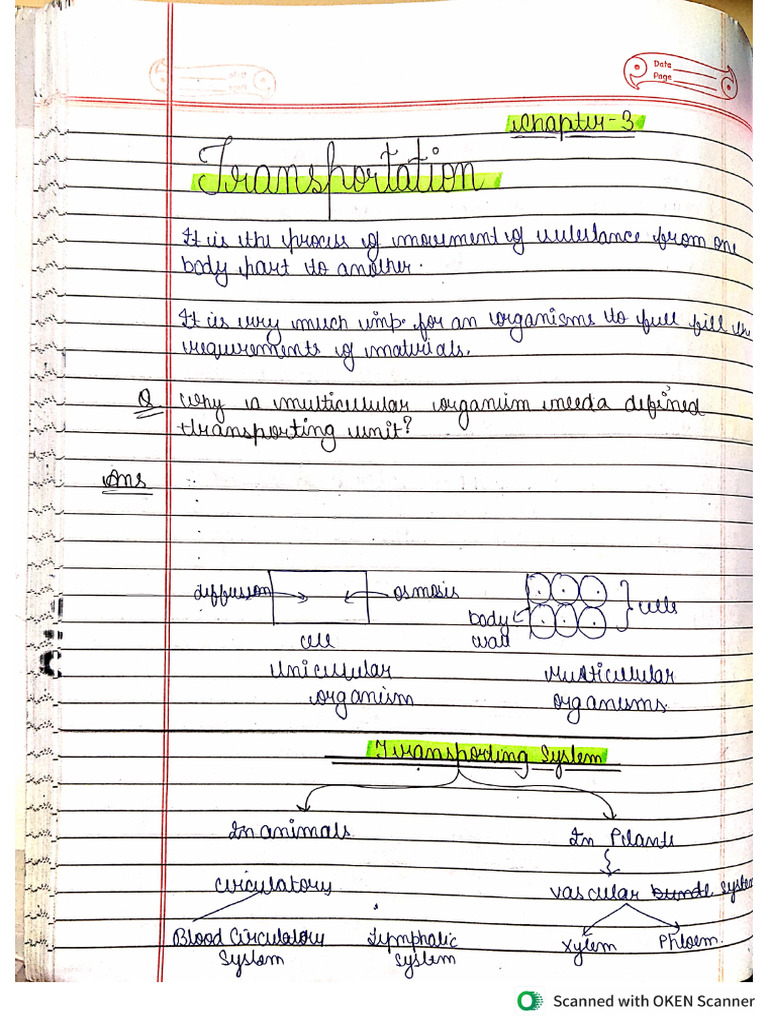 Date
Page
Chapter-3
Transportation
It is the process of movement of substance from one
body part to another.
It is very much imp. for an organisms to full fill the
requirements of materials.
Q Why is multicellular organism need a defined
transporting unit?
Ans
diffusion osmosis cells
body
wall
cell
Unicellular Multicellular
organism organisms
Transporting System
In animals In Plants
circulatory vascular bundle system
Blood Circulatory Lymphatic Xylem Phloem.
System system
Scanned with OKEN Scanner